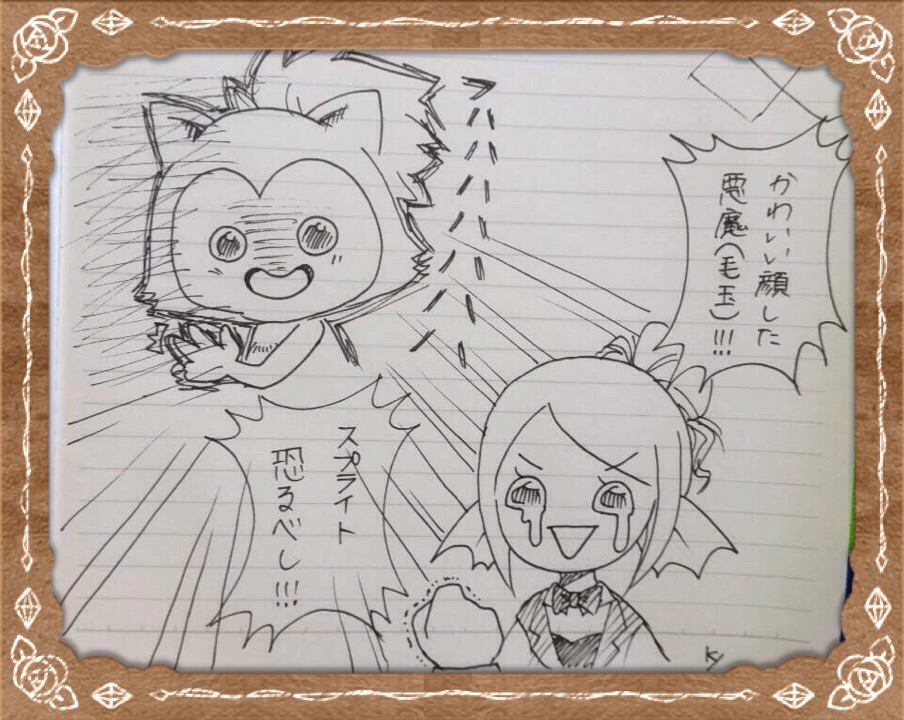 かわいい顔した
悪魔(毛玉)!!!
フハハハハハハハ
スプライト
恐るべし!!!
Ky